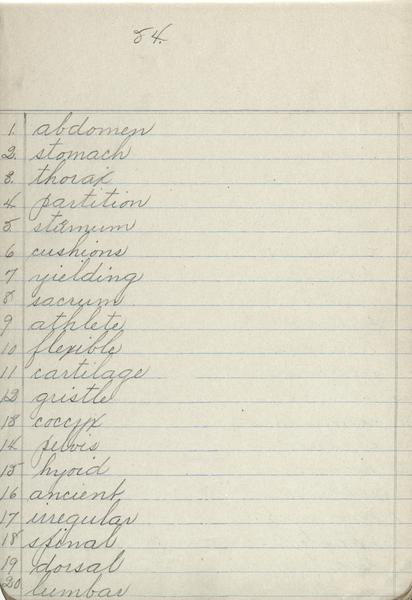 54.
1. abdomen
2. stomach
3. thorax
4. partition
5. sternum
6 cushions
7 yielding
8 sacrum
9 athlete
10 flexible
11 cartilage
12 gristle
13 coccyx
14 pelvis
15 hyoid
16 ancient
17 irregular
18 spinal
19 dorsal
20 lumbar